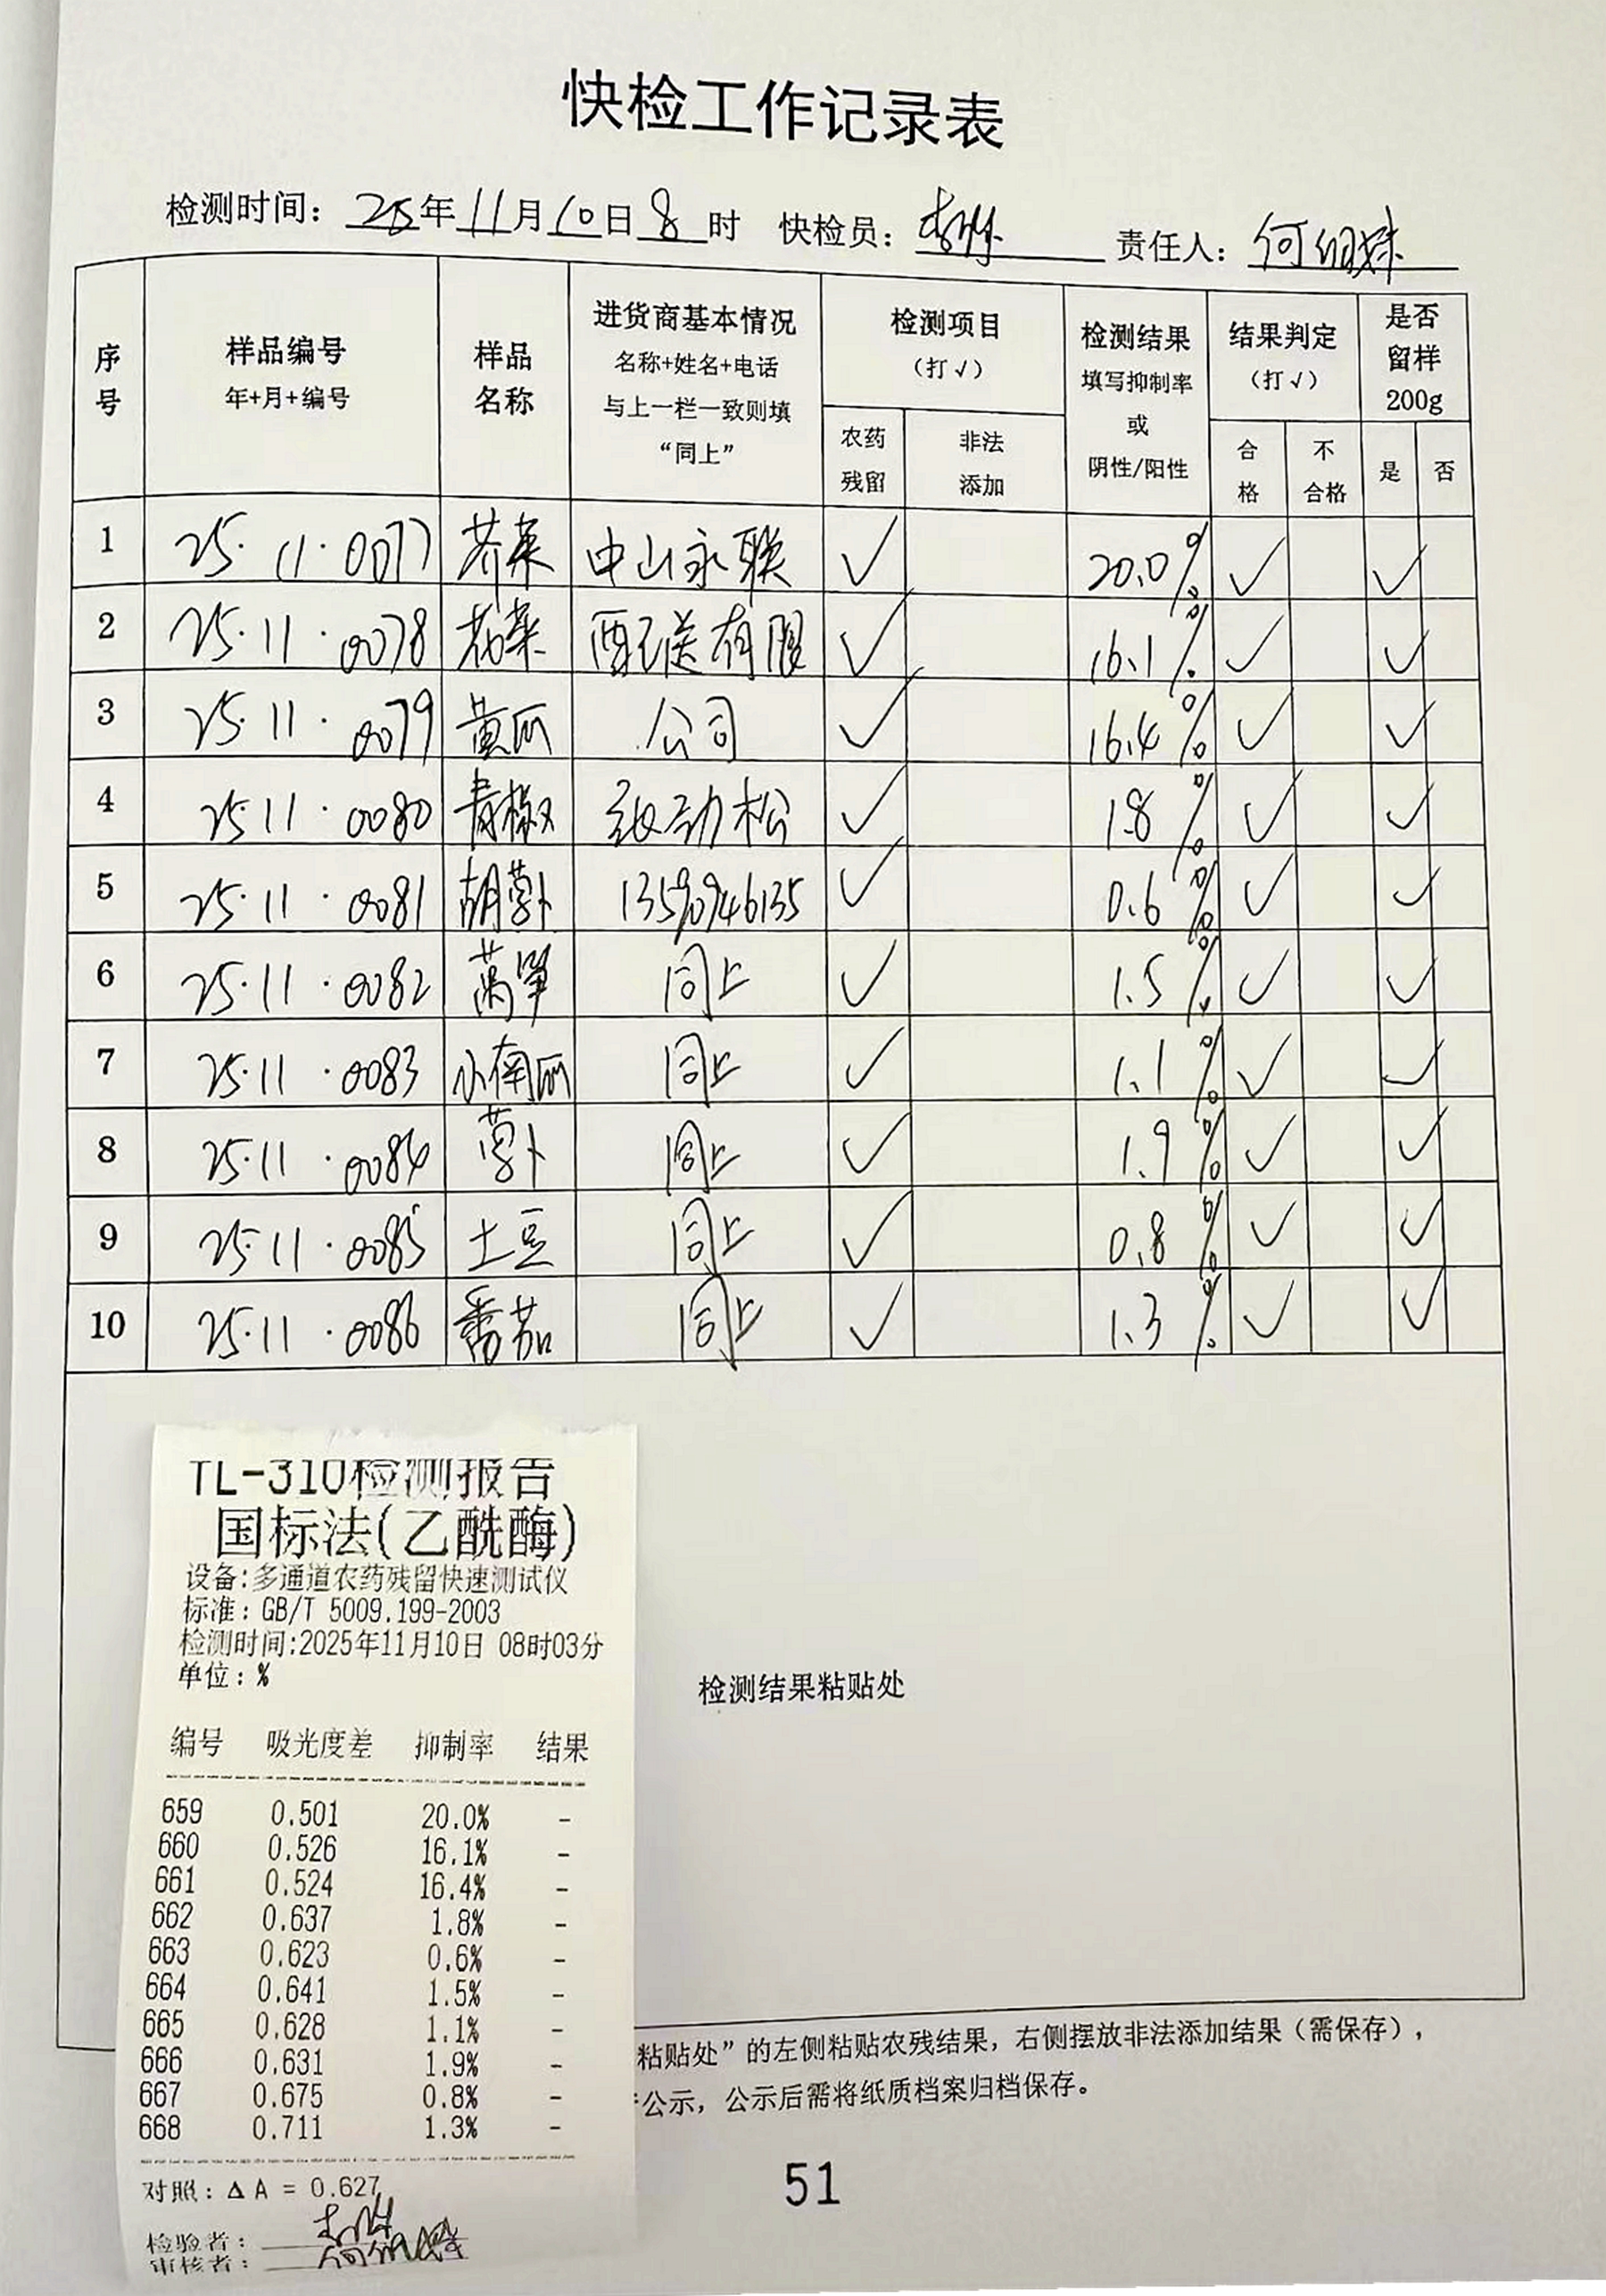 快检工作记录表
检测时间：25年11月10日8时 快检员： 责任人：何细妹
序号 样品编号 年+月+编号 样品名称 进货商基本情况 名称+姓名+电话 与上一栏一致则填“同上” 检测项目（打√） 农药残留 非法添加 检测结果 填写抑制率或阴性/阳性 结果判定（打√） 合格 不合格 是否留样200g 是 否
1 25.11.0077 芥菜 中山永联 √ 20.0% √ √
2 25.11.0078 花菜 配送有限 √ 16.1% √ √
3 25.11.0079 黄瓜 公司 √ 16.4% √ √
4 25.11.0080 青椒 劲松 √ 1.8% √ √
5 25.11.0081 胡萝卜 √ 0.6% √ √
6 25.11.0082 莴笋 同上 √ 1.5% √ √
7 25.11.0083 小南瓜 同上 √ 1.1% √ √
8 25.11.0084 萝卜 同上 √ 1.9% √ √
9 25.11.0085 土豆 同上 √ 0.8% √ √
10 25.11.0086 番茄 同上 √ 1.3% √ √
检测结果粘贴处
TL-310检测报告
国标法(乙酰酶)
设备:多通道农药残留快速测试仪
标准: GB/T 5009.199-2003
检测时间:2025年11月10日 08时03分
单位: %
编号 吸光度差 抑制率 结果
659 0.501 20.0% -
660 0.526 16.1% -
661 0.524 16.4% -
662 0.637 1.8% -
663 0.623 0.6% -
664 0.641 1.5% -
665 0.628 1.1% -
666 0.631 1.9% -
667 0.675 0.8% -
668 0.711 1.3% -
对照: Δ A = 0.627
检验者:
审核者:
粘贴处”的左侧粘贴农残结果，右侧摆放非法添加结果（需保存），
公示，公示后需将纸质档案归档保存。
51